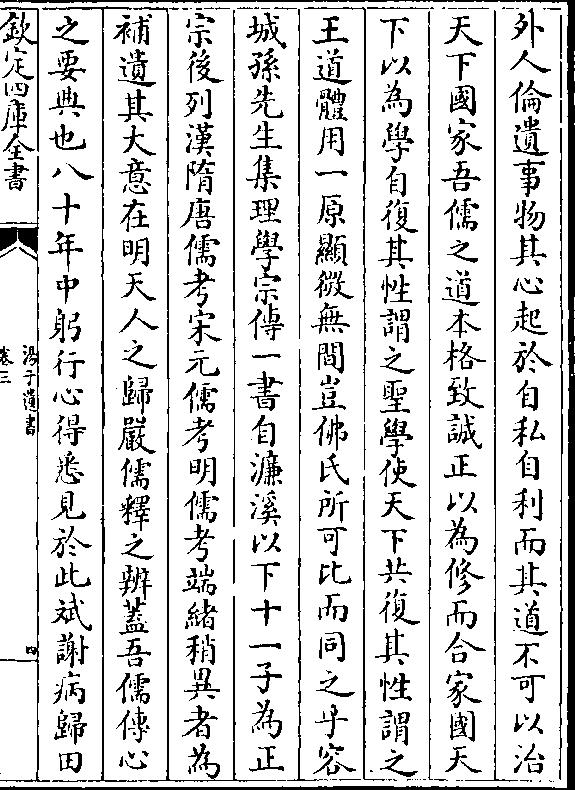 外人倫遺事物其心起於自私自利而其道不可以治
天下國家吾儒之道本格致誠正以為修而合家國天
下以為學自復其性謂之聖學使天下共復其性謂之
王道體用一原顯微無間豈佛氏所可比而同之乎容
城孫先生集理學宗傳一書自濂溪以下十一子為正
宗後列漢隋唐儒考宋元儒考明儒考端緒稍異者為
補遺其大意在明天人之歸嚴儒釋之辨蓋吾儒傳心
之要典也八十年中躬行心得悉見於此斌謝病歸田
欽定四庫全書
湯子遺書
卷三
四